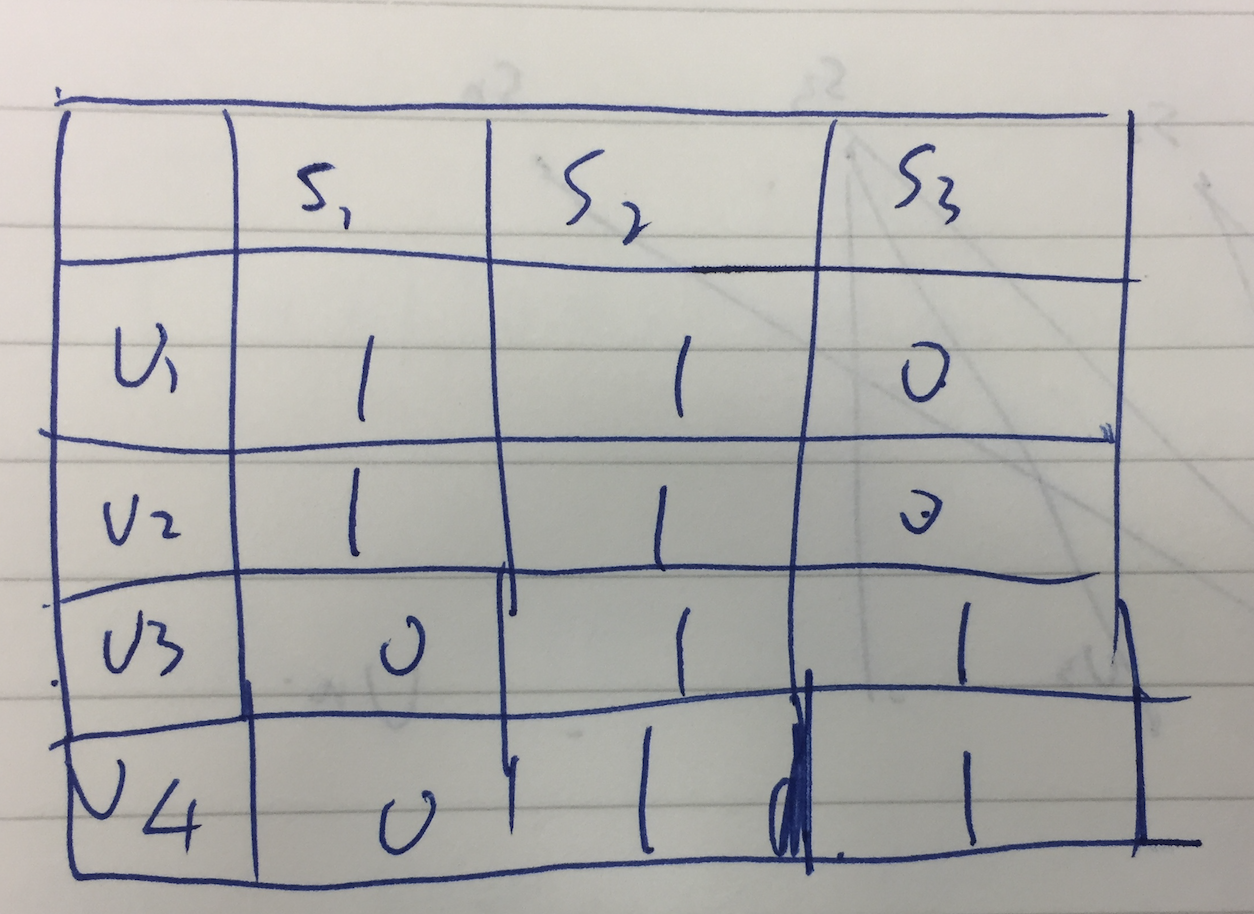 S1 S2 S3
U1 1 1 0
U2 1 1 0
U3 0 1 1
U4 0 1 1